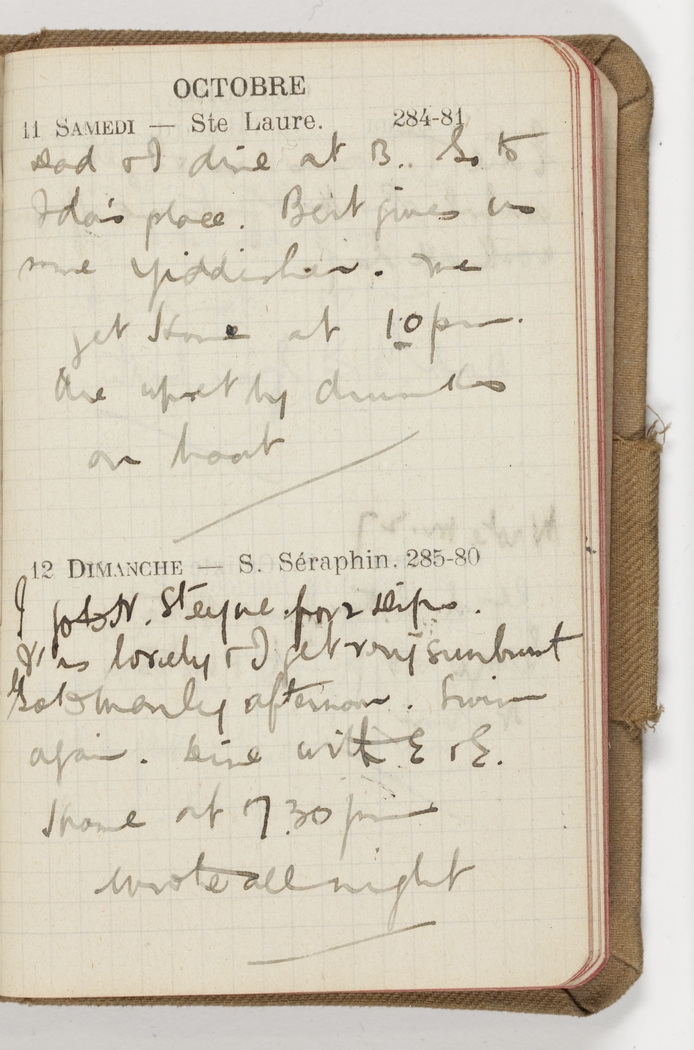 OCTOBRE
11 SAMEDI — Ste Laure. 284-81
Dad & I dine at B.. Go to
Ida's place. Bert gives us
some Yiddisher. We
get Home at 10 pm.
Are upset by drunks
on boat
12 DIMANCHE — S. Séraphin. 285-80
I go to N. Steyne for 2 dips.
It is lovely & I get very sunburnt
Go to Manly afternoon. Swim
again. Dine with E & E.
Home at 7.30 pm
Wrote all night